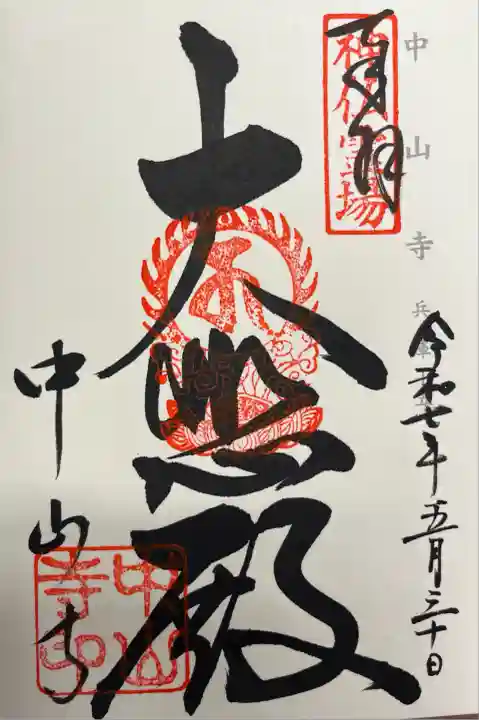 中山寺 兵庫
神仏霊場
奉拝
令和七年五月三十日
大悲殿
中山寺
中山寺印